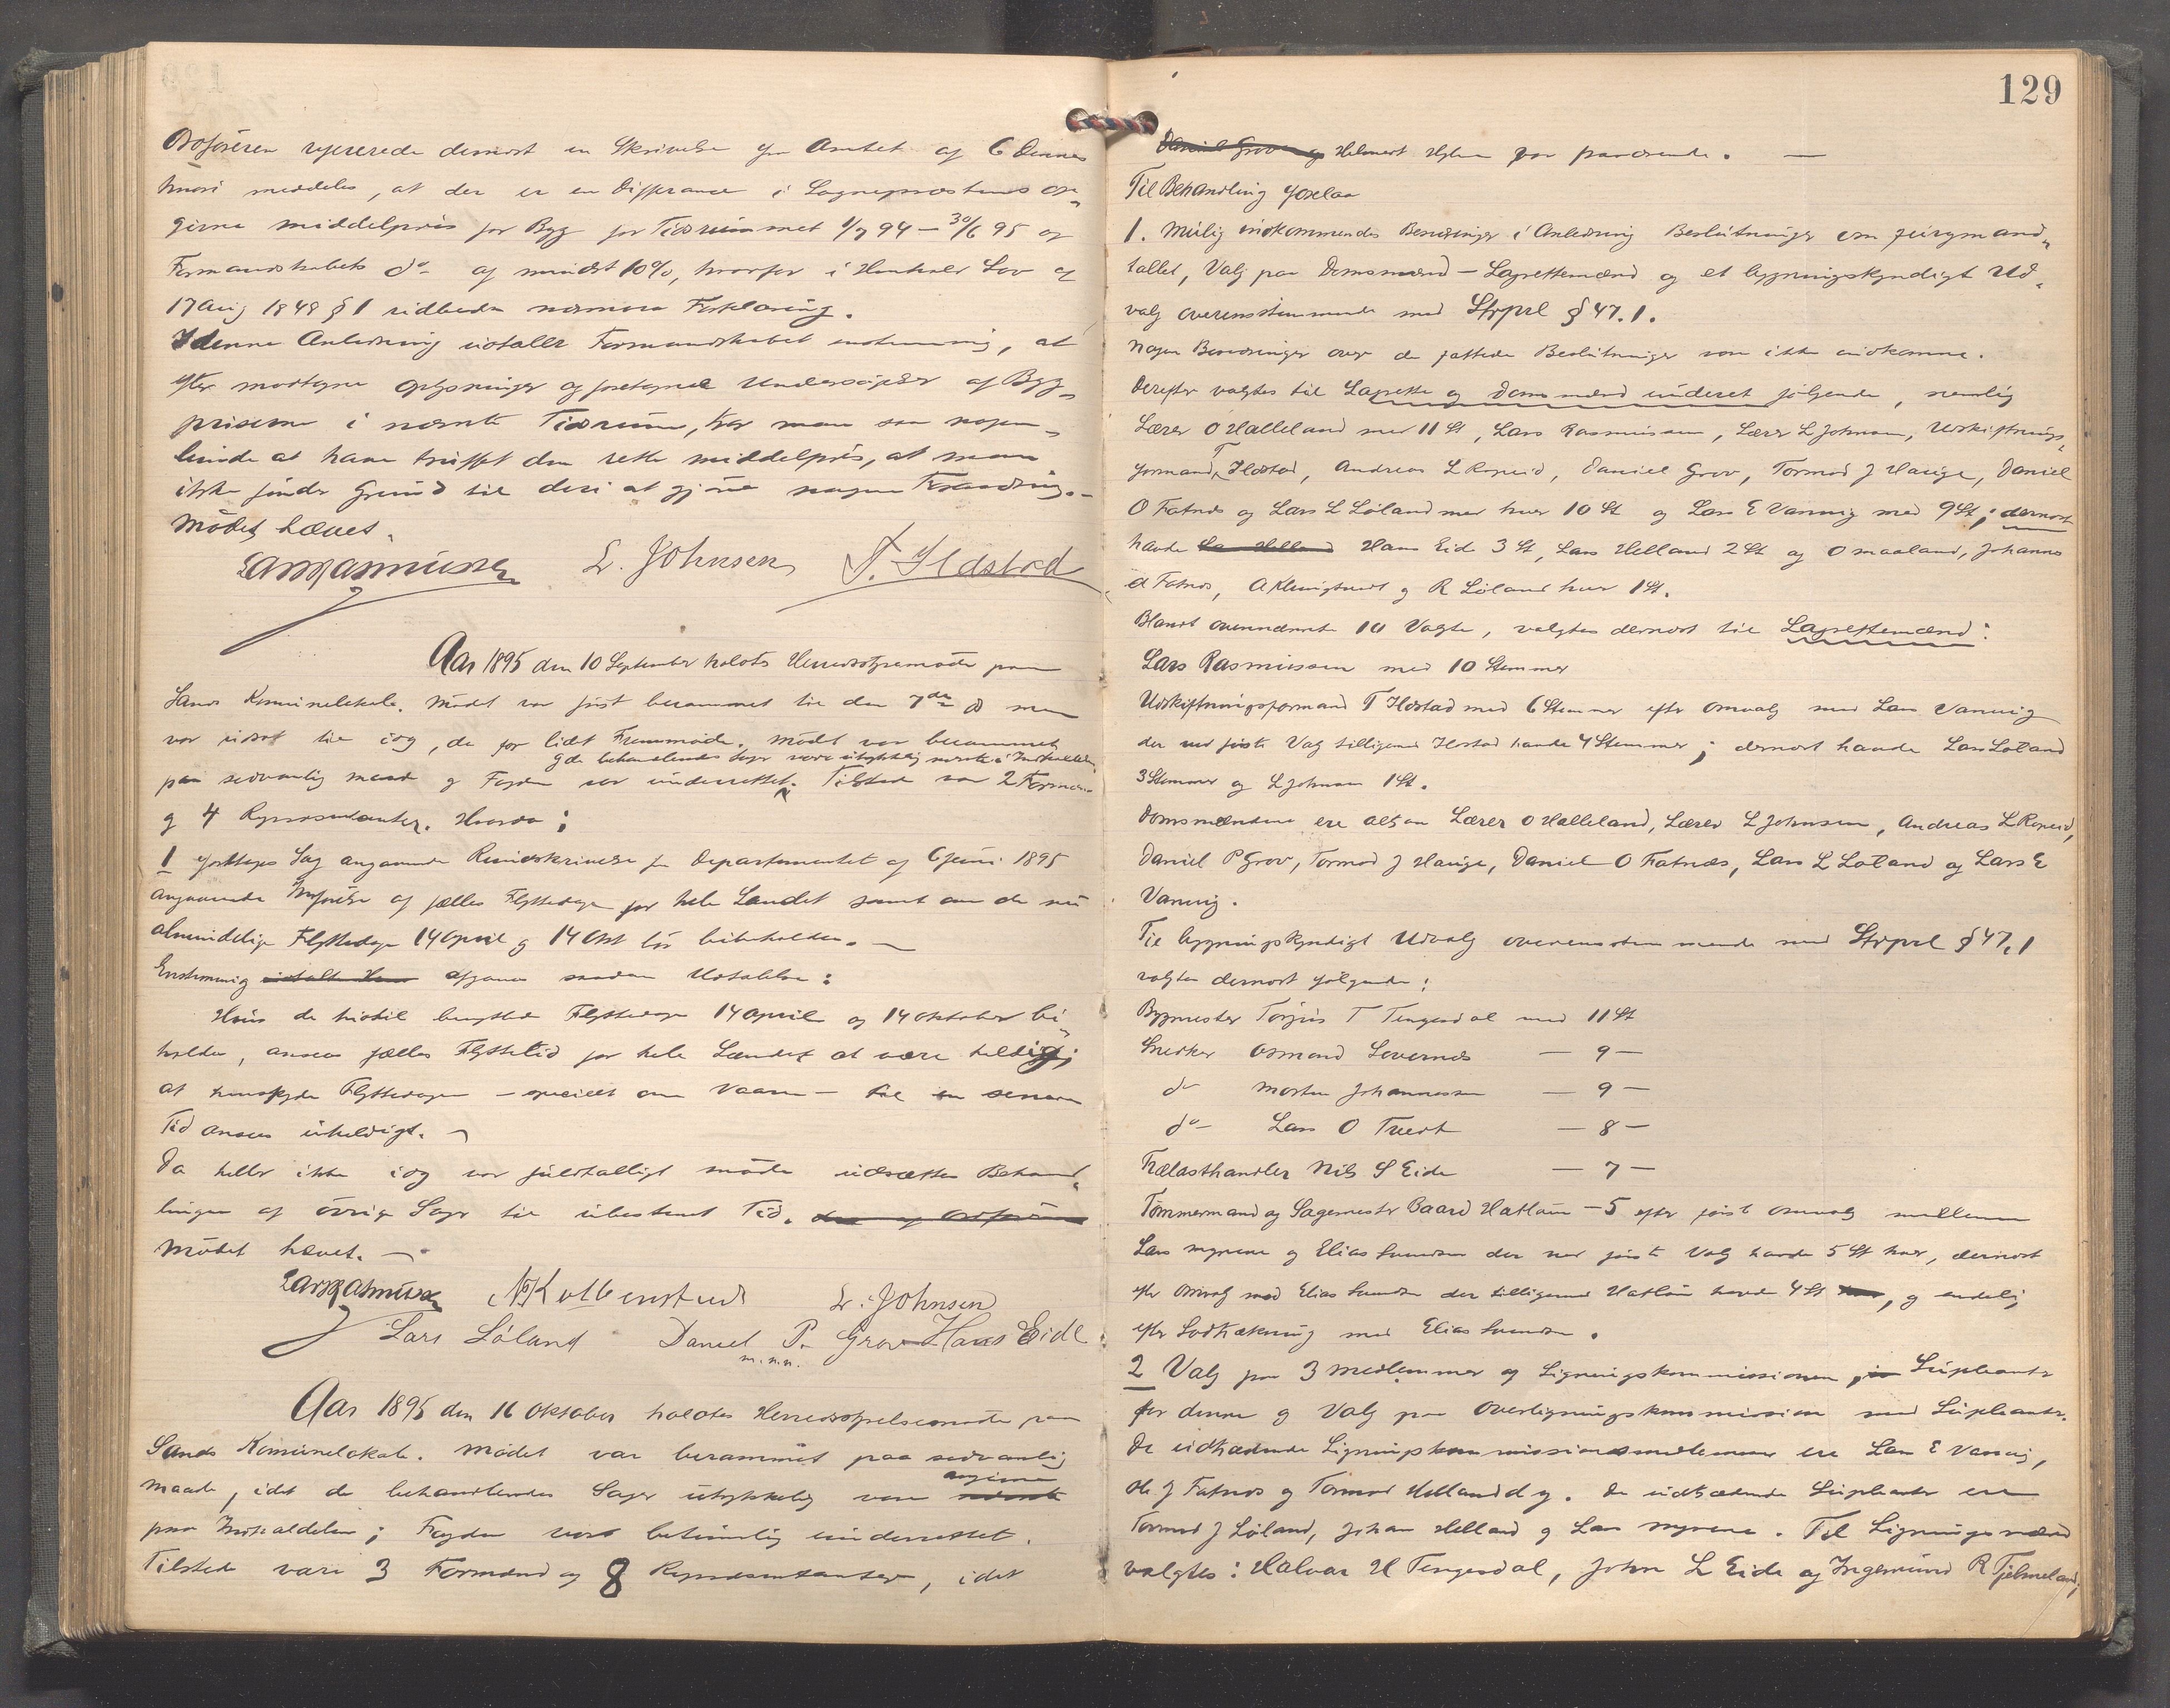 Ordføreren refererede dernæst en Skrivelse fra Amtet af 6 Dennes
hvori meddeles, at der er en Differance i Sognepræstens op-
givne middelpris for Byg for Tidsrummet 1/7 94 – 30/6 95 og
Formandskabets do af mindst 10%, hvorfor i Henhold Lov af
17 Aug 1848 § 1 udbedes nærmere Forklaring.
I denne Anledning udtaller Formandskabet enstemmig, at
efter modtagne Oplysninger og foretagne Undersøgelser af Byg-
priserne i nævnte Tidsrum, tror man saa nogen-
lunde at have truffet den rette middelpris, at man
ikke finder Grund til deri at gjøre nogen Forandring.
Mødet hævet.
Lars Rasmussen L. Johnsen T. Ildstad
Aar 1895 den 10 September holdtes Herredsstyremøde paa
Sands Kommunelokale. Mødet var først berammet til den 7de ds men
var udsat til idag, da for lidt Fremmøde. Mødet var berammet
og de behandlendes Sager vare utrykkelig nævnte i Indkaldelsen
paa sedvanlig maade og Fogden var underrettet. Tilstede var 2 Formænd
og 4 Repræsentanter. Hvorda:
1 Foretoges Sag angaaende Rundskrivelse fra Departementet af 6 Juni 1895
angaaende Indførelse af fælles Flyttedage for hele Landet samt om de nu
almindelige Flyttedage 14 April og 14 Okt bør bibeholdes. —
Enstemmig afgaves saadan Udtalelse:
Hvis de hidtil benyttede Flyttedage 14 April og 14 Oktober bi-
holdes, ansees fælles Flyttetid for hele Landet at være heldig;
at henskyde Flyttedagen – specielt om Vaaren – til en senere
Tid ansees uheldigt. —
Da heller ikke idag var fuldtalligt møde udsættes Behand-
lingen af øvrige Sager til ubestemt Tid.
Mødet hævet. —
Lars Rasmussen L. Johnsen
Lars Løland Daniel P. Grov Hans Eide
m.n.n.
Aar 1895 den 16 Oktober holdtes Herredsstyrelsemøde paa
Sands Komunelokale. Mødet var berammet paa sedvanlig
maade, idet de behandlendes Sager utrykkelig vare angivne
paa Indkaldelsen; Fogden var betimelig underrettet.
Tilstede vare 3 Formænd og 8 Repræsentanter, idet
129
Daniel Grov og Helmert Hylen var fraværende. —
Til Behandling forelaa
1. Mulig indkommendes Besværinger i Anledning Beslutninger om Jurymand-
tallet, Valg paa Domsmænd – Lagrettemænd og et bygningskyndigt Ud-
valg overensstemmende med Strprl § 47.1.
Nogen Besværinger over de fattede Beslutninger var ikke indkomne.
Derefter valgtes til Lagrette og Domsmænd underet følgende, nemlig
Lærer O Halleland med 11 St, Lars Rasmussen, Lærer L Johnsen, Udskiftnings-
formand T Ildstad, Andreas L Ropeid, Daniel Grov, Tormod J Hauge, Daniel
O Fatnes og Lars L Løland med hver 10 St og Lars E Vanvig med 9 St; dernæst
havde Hans Eide 3 St, Lars Helland 2 St og O Maaland, Johannes
Fatnes, A Klungtvedt og R Løland hver 1 St.
Blandt ovennævnte 10 Valgte, valgtes dernæst til Lagrettemænd:
Lars Rasmussen med 10 Stemmer
Udskiftningsformand T Ildstad med 6 Stemmer efter omvalg med Lars Vanvig
der ved første Valg tilligemed Ildstad havde 4 Stemmer; dernæst havde Lars Løland
3 Stemmer og L Johnsen 1 St.
Domsmændene ere altsaa Lærer O Halleland, Lærer L Johnsen, Andreas L Ropeid,
Daniel P Grov, Tormod J Hauge, Daniel O Fatnæs, Lars L Løland og Lars E
Vanvig.
Til bygningskyndigt Udvalg overensstemmende med Strprl § 47.1
valgtes dernæst følgende:
Bygmester Torjus T Tengesdal med 11 St
Snedker Osmond Lovernes — 9 —
do Morten Johannessen — 9 —
do Lars O Tvedt — 8 —
Trælasthandler Nils S Eide — 7 —
Tømmermand og Sagmester Baard Hatløin – 5 efter først omvalg mellem
Lars Myrene og Elias Svendsen der ved første Valg havde 5 St hver, dernæst
efter Omvalg med Elias Svendsen der tilligemed Hatløin havde 4 St, og endelig
efter Lodtrækning med Elias Svendsen.
2 Valg paa 3 medlemmer af Ligningskommissionen, Supleanter
for denne og Valg paa Overligningskommission med Supleanter.
De udtrædende Ligningskommissionsmedlemmer ere Lars E Vanvig,
J Fatnes og Tormod Helland d y. De udtrædende Supleanter ere
Tormod J Løland, Johan Helland og Lars Myrene. Til Ligningsmænd
valgtes: Halvor H Tengesdal, John L Eide og Ingemund R Tjelmeland;